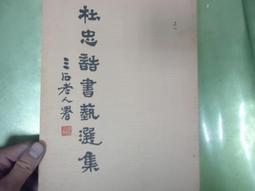 杜忠誥書藝選集
三石老人署